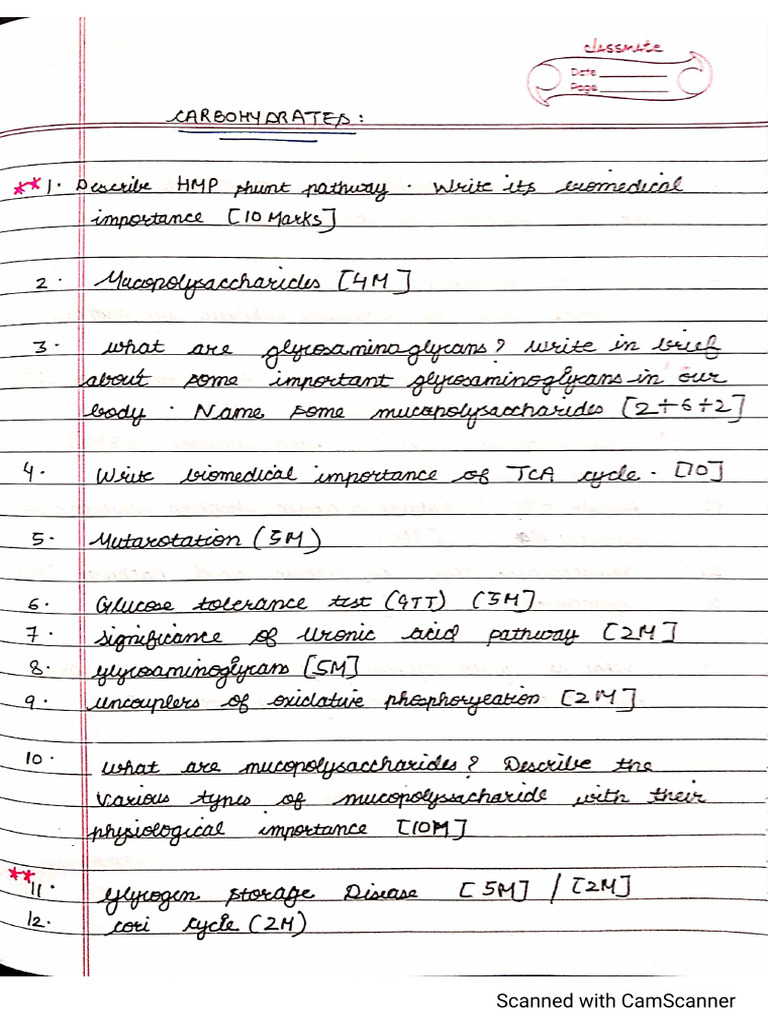 classmate
Date
Page
CARBOHYDRATES:
** 1. Describe HMP shunt pathway. Write its biomedical
importance [10 Marks]
2. Mucopolysaccharides [4M]
3. what are glycosaminoglycans? Write in brief
about some important glycosaminoglycans in our
body. Name some mucopolysaccharides [2+6+2]
4. Write biomedical importance of TCA cycle. [10]
5. Mutarotation (5M)
6. Glucose tolerance test (GTT) (5M]
7. significance of Uronic acid pathway [2M]
8. glycoaminoglycans [5M]
9. uncouplers of oxidative phosphoryeation [2M]
10. what are mucopolysaccharides? Describe the
various types of mucopolyssacharide with their
physiological importance [10M]
** 11. Glycogen storage Disease [5M] / [2M]
12. cori cycle (2M)
Scanned with CamScanner